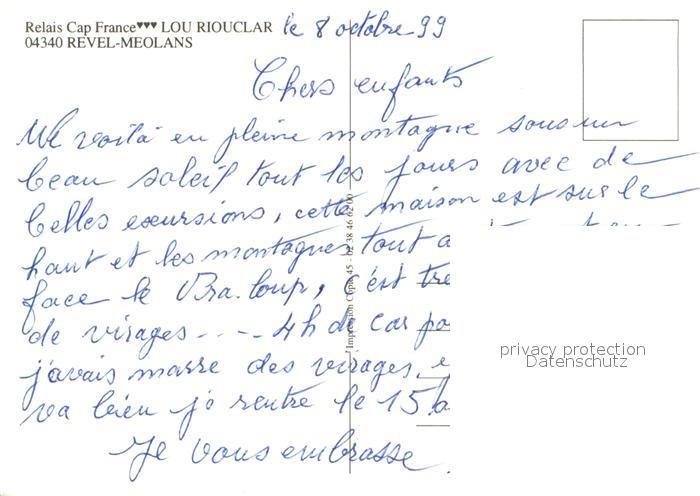 Relais Cap France♥♥♥ LOU RIOUCLAR
04340 REVEL-MEOLANS
le 8 octobre 99
Chers enfants
Me voilà en pleine montagne sous un
beau soleil tout les jours avec de
belles excursions, cette maison est sur le
haut et les montagnes tout a
face le Pra.loup, c'est tre
de virages - - - 4h de car po
j'avais marre des virages, e
va bien je rentre le 15
Je vous embrasse
Impression Copie 45 - 02 38 46 62 00
privacy protection
Datenschutz